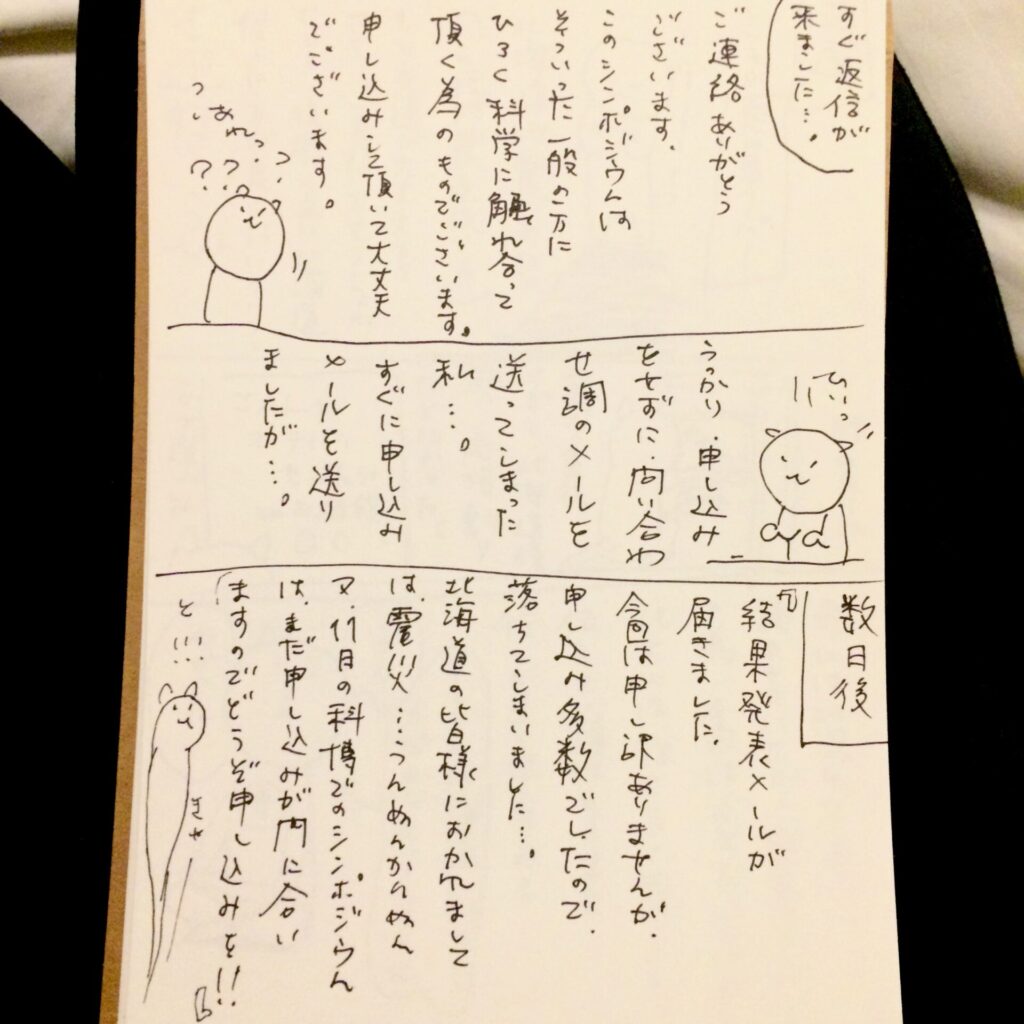 すぐ返信が
来ました…。
ご連絡ありがとう
ございます。
このシンポジウムは
そういった一般の方に
ひろく科学に触れ合って
頂く為のものでございます。
申し込みして頂いて大丈夫
でございます。
あれっ?
???
ひぃっ
うっかり、申し込み
をせずに、問い合わ
せ調のメールを
送ってしまった
私…。
すぐに申し込み
メールを送り
ましたが…。
数日後
「結果発表メールが
届きました。
今回は申し訳ありませんが、
申し込み多数でしたので、
落ちてしまいました…。
北海道の皆様におかれまして
は、震災…うんぬんかんぬん
又、11月の科博でのシンポジウム
は、まだ申し込みが間に合い
ますのでどうぞ申し込みを!!」
と!!!
きゃ